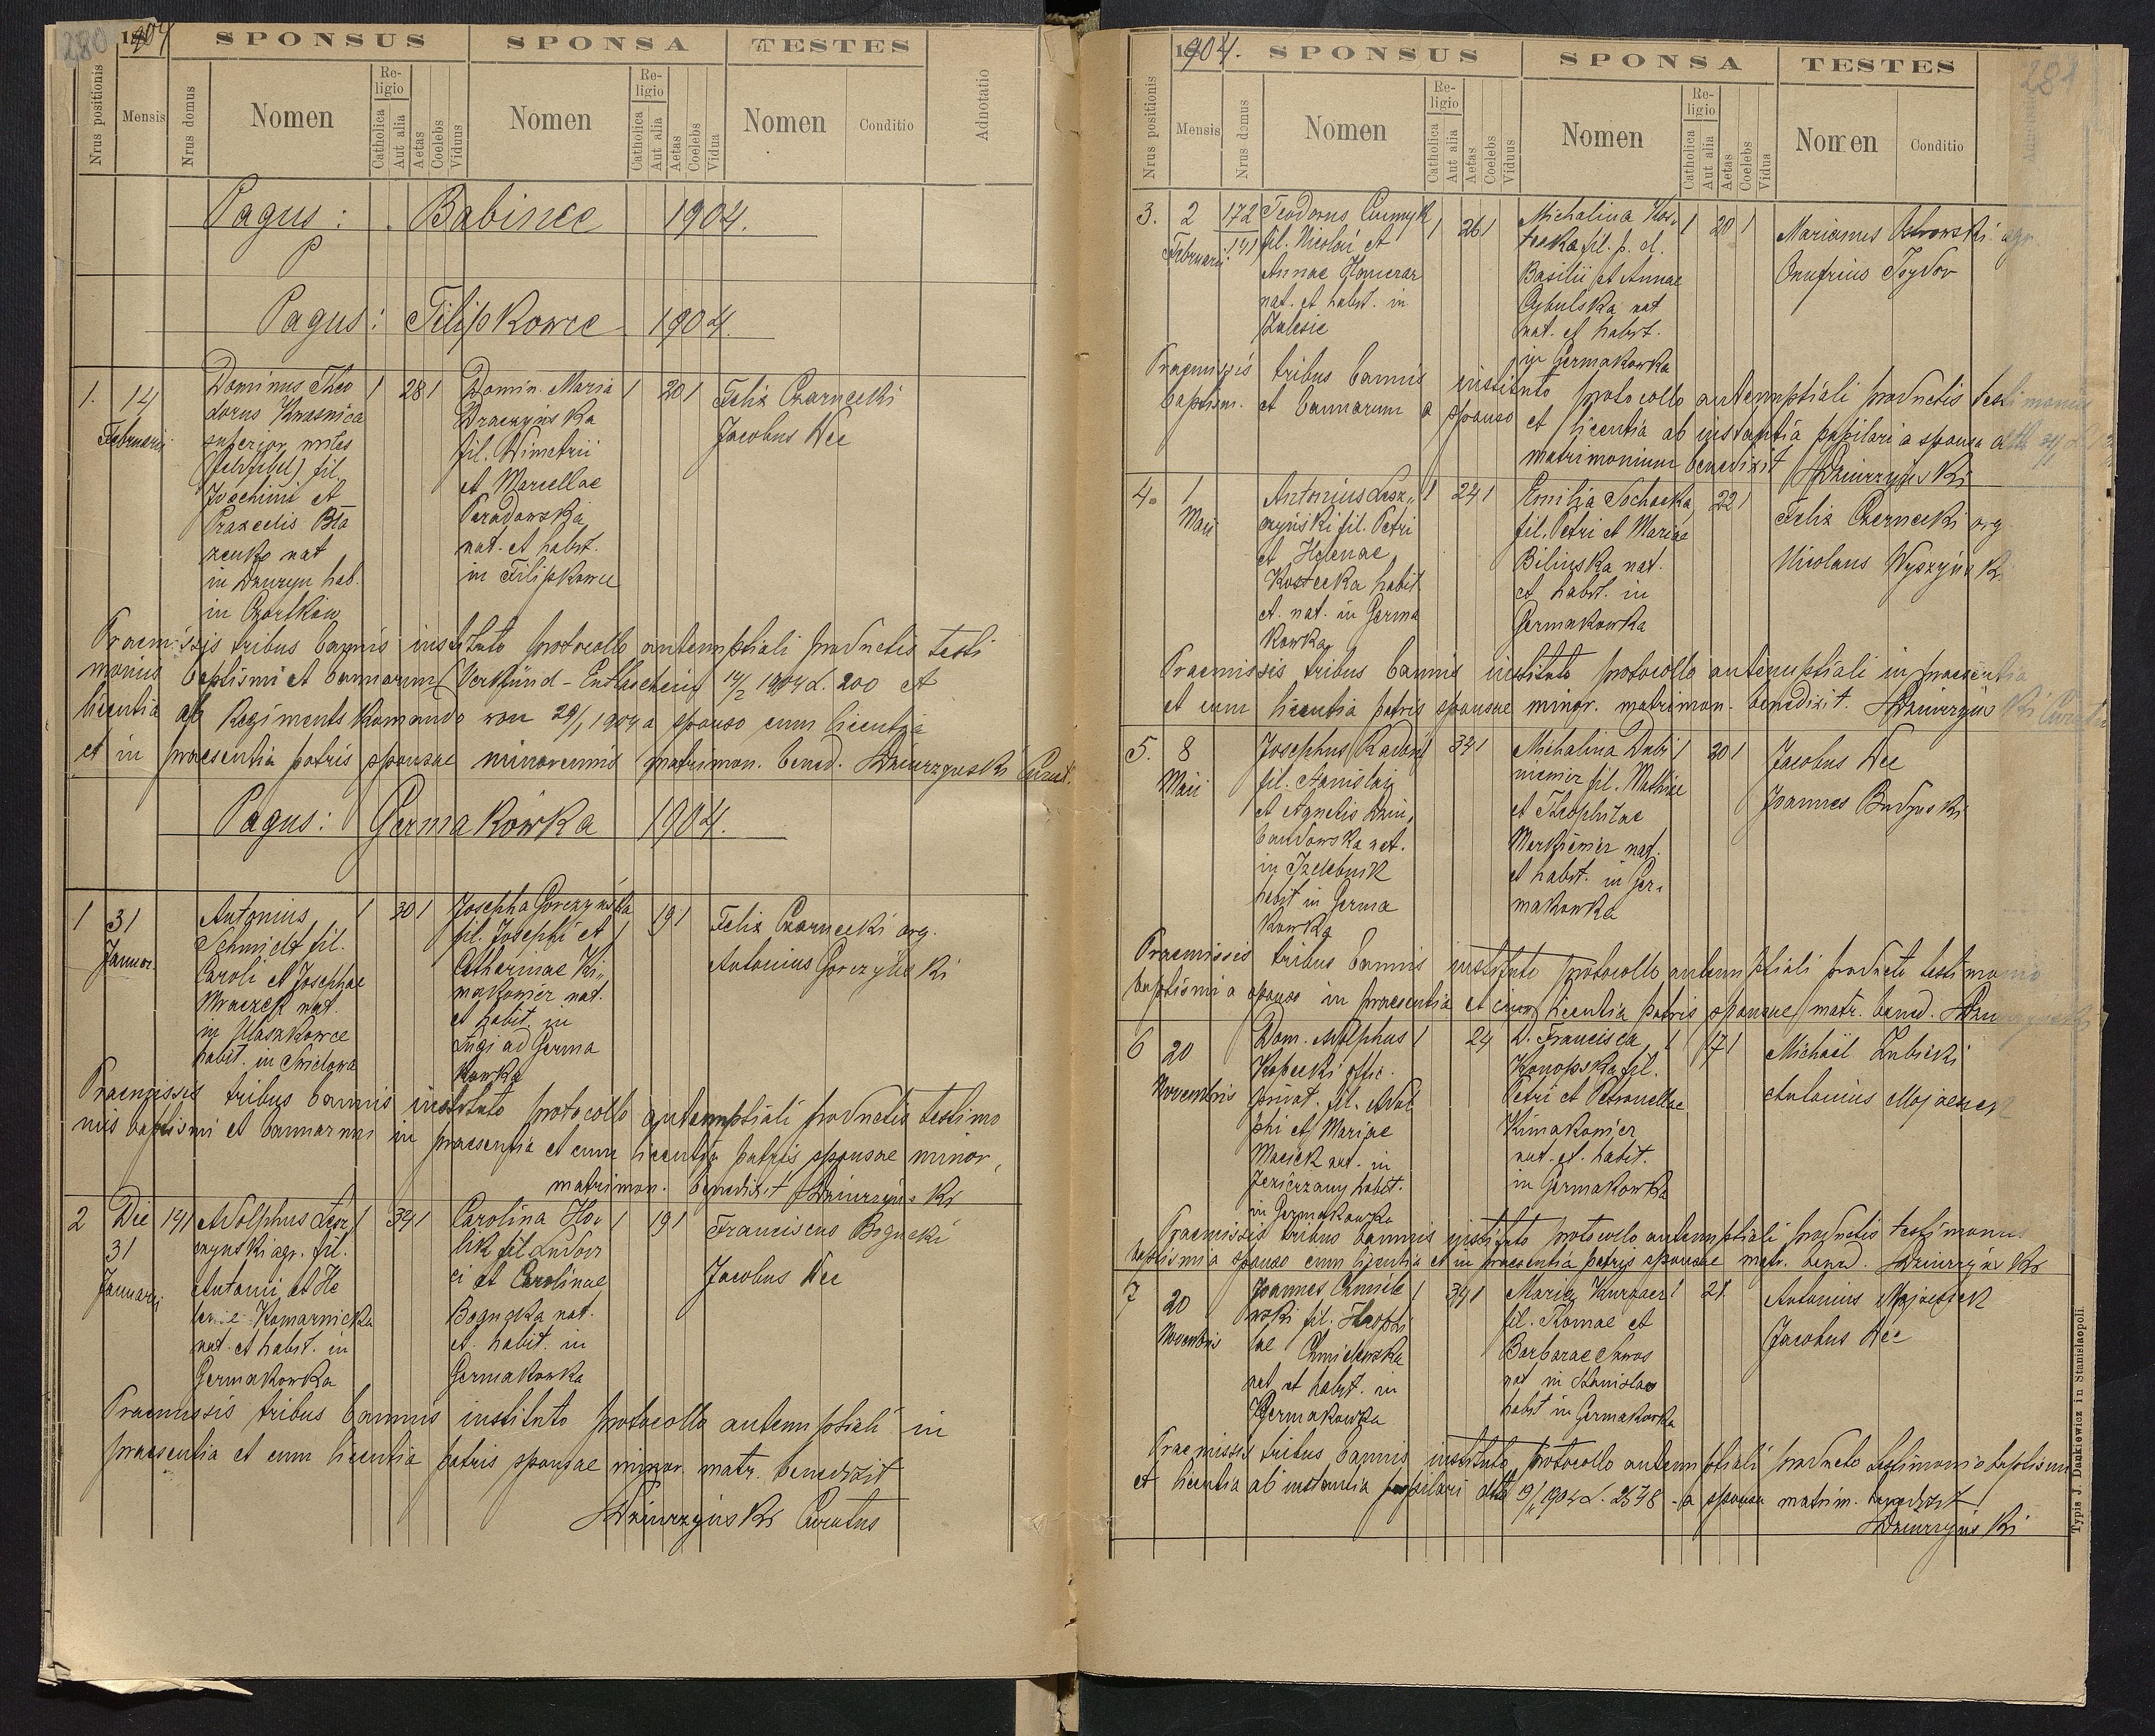 280
1904
SPONSUS
SPONSA
TESTES
Nrus positionis
Mensis
Nrus domus
Nomen
Religio
Catholica
Aut alia
Aetas
Coelebs
Viduus
Nomen
Religio
Catholica
Aut alia
Aetas
Coelebs
Vidua
Nomen
Conditio
Adnotatio
Pagus: Babince 1904.
Pagus: Filipkowce 1904.
1. 14 Februarii
Dominus Theo
dorus
superior miles
(feldfebel) fil.
Joachimi et
Praxedis Bła
zenko nat
in Dżuryn hab.
in Czortków
1 28 1
Domin. Maria
Draczyńska
fil. Dimetrii
et Marcellae
nat. et habit.
in Filipkowce
1 20 1
Felix Czarnecki
Jacobus Dec
Praemissis tribus bannis instituto protocollo antenuptiali productis testi
moniis baptismi et bannarum (Verkünd-Entlaschein 14/2 1904 L. 200 et
licentia ab Regiments Komando von 29/1 1904 a sponso cum licentia
et in praesentia patris sponsae minorennis matrimon. bened. Dziurzyński Curat.
Pagus: Germakówka 1904.
1 31 Januar.
Antonius
Schmidt fil.
Caroli et Josephae
Mraczek nat.
in Ułaszkowce
habit. in Swidowa
1 30 1
Josepha Gorczyńska
fil. Josephi et
Catharinae Ki„
makowicz nat.
et habit in
Ługi ad Germa
kowka
1 19 1
Felix Czarnecki org.
Antonius Gorczyński
Praemissis tribus bannis instituto protocollo antenuptiali productis testimo
niis baptismi et bannarum in praesentia et cum licentia patris sponsae minor,
matrimon. benedixit Dziurzyński
2 Die 31 Januarii
141
Adolphus Lesz
czyński agr. fil.
Antonii et He
lenae Komarnicka
nat. et habit. in
Germakowka
1 34 1
Carolina Ho„
lik fil Ludovi
ci et Carolinae
Bogucka nat.
et. habit. in
Germakowka
1 19 1
Franciscus Bogucki
Jacobus Dec
Praemissis tribus bannis instituto protocollo antenuptiali in
praesentia et cum licentia patris sponsae minor. matr. benedixit
Dziurzyński Curatus
281
1904.
SPONSUS
SPONSA
TESTES
Nrus positionis
Mensis
Nrus domus
Nomen
Religio
Catholica
Aut alia
Aetas
Coelebs
Viduus
Nomen
Religio
Catholica
Aut alia
Aetas
Coelebs
Vidua
Nomen
Conditio
3. 2 Februarii
172
141
Teodorus
fil. Nicolai et
Annae
nat. et habit. in
Zalesie
1 26 1
Michalina Kos„
tecka fil. p. d.
Basilii et Annae
Cybulska nat
nat. et habit.
in Germakowka
1 20 1
Marianus Ostrowski agr.
Onufrius
Praemissis tribus bannis instituto protocollo antenuptiali productis testimoniis
baptism. et bannarum a sponso et licentia ab instantia pupilari a sponsa
matrimonium benedixit Dziurzyński
4. 1 Maii
Antonius Lesz„
czyński fil. Petri
et Helenae
Kostecka habit
et. nat. in Germa
kowka
1 24 1
Emilia Sochacka
fil. Petri et Mariae
Bilinska nat.
et habit. in
Germakowka
22 1
Felix Czernecki org
Nicolaus Wyszyński
Praemissis tribus bannis instituto protocollo antenuptiali in praesentia
et cum licentia patris sponsae minor. matrimon. benedixit. Dziurzyński Curatus
5. 8 Maii
Josephus Radoń
fil. Stanislai
et Agnetis
nat.
in Izdebnik
habit in Germa
kowka
34 1
Michalina Dubi
niewicz fil. Mathiae
et Theophilae
nat.
et habit. in Ger„
makowka
1 20 1
Jacobus Dec
Joannes Budyński
Praemissis tribus bannis instituto protocollo antenuptiali producto testimonio
baptismi a sponso in praesentia et cum licentia patris sponsae matr. bened. Dziurzyński
6 20 Novembris
Dom. Adolphus
Kopecki offic.
privat. fil. Adol
phi et Mariae
Maciek nat. in
Jezierzany habit.
in Germakowka
1 24
D. Francisca
Konopska fil.
Petri et Petronellae
Kimakowicz
nat. et. habit.
in Germakowka
1 17 1
Michaël Zubicki
Antonius Mojaczek
Praemissis tribus bannis instituto protocollo antenuptiali productis testimoniis
baptismi a sponso cum licentia et in praesentia patris sponsae matr. bened. Dziurzyński
7 20 Novembris
Joannes Chmiele
wski fil. Theophi
lae Chmielewska
nat et habit. in
Germakowka
1 34 1
Maria Kurzacz
fil. Thomae et
Barbarae
nat in Stanislao
habit in Germakowka
1 21.
Antonius Mojaczek
Jacobus Dec
Praemissis tribus bannis instituto protocollo antenuptiali producto testimonio baptismi
et licentia ab instantia pupilari dtto 19/ 1904 L. 2548 - a sponsa matrim. benedixit
Dziurzyński
Typis J. Dankiewicz in Stanislaopoli.